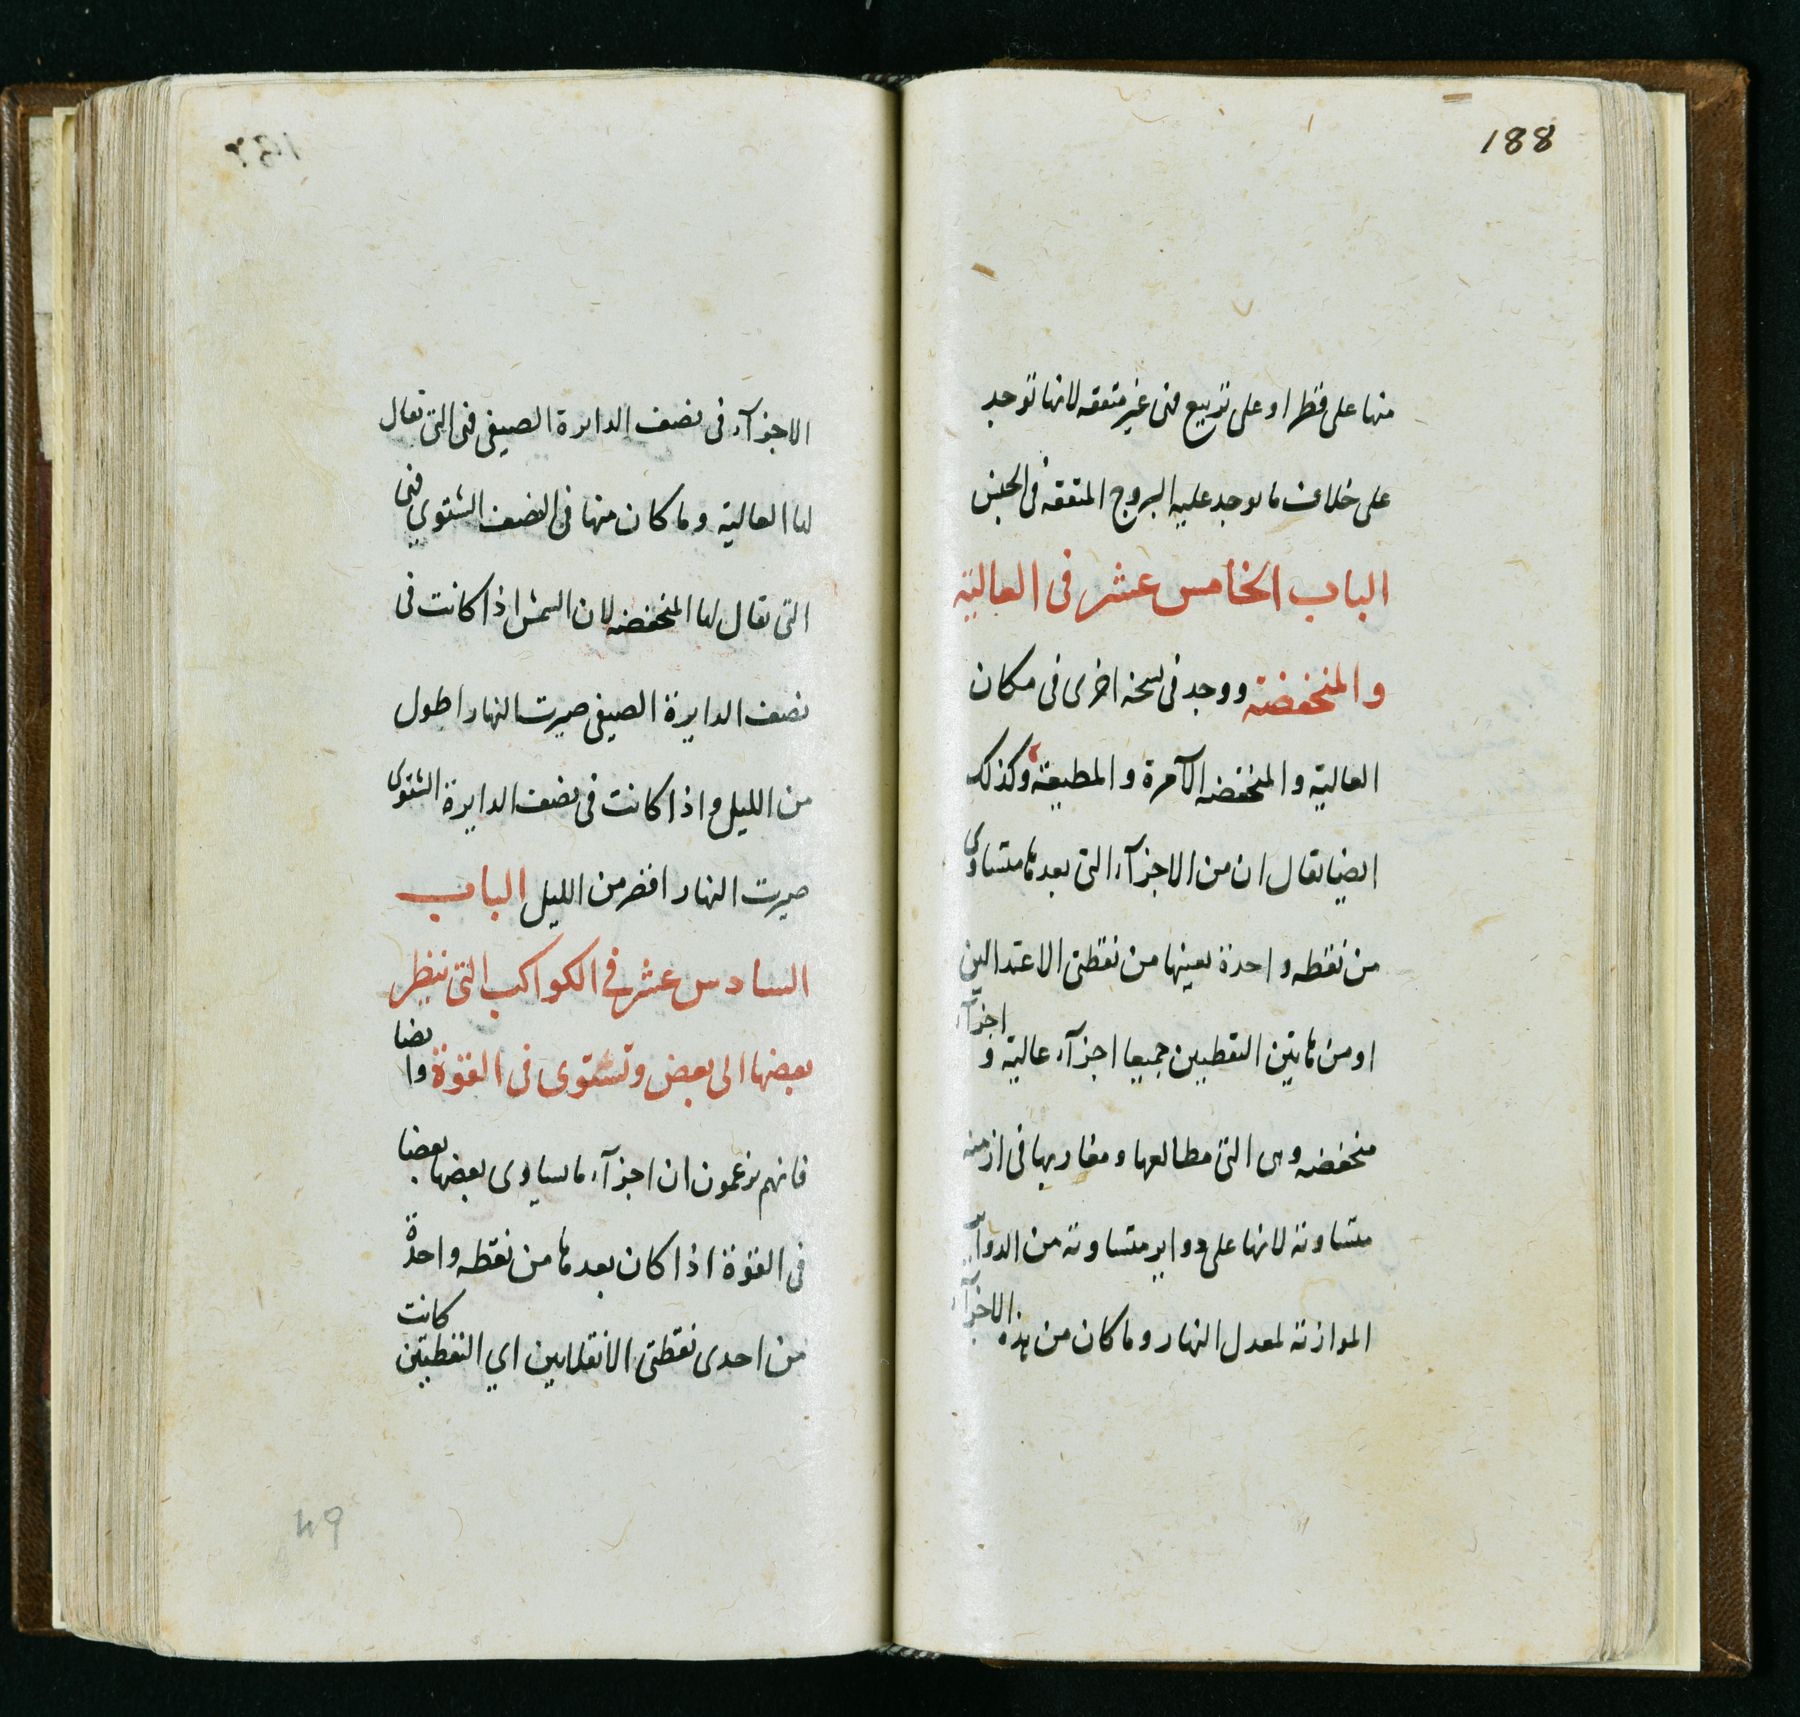 188
منها على قطر او على تربيع فهى غير متفقه لانها توجد
على خلاف ما يوجد عليه البروج المتفقه فى الجنس
الباب الخامس عشر فى العالية
والمنخفضة ووجد فى نسخه اخرى فى مكان
العالية والمنخفضه الآمرة والمطيعة وكذلك
ايضا يقال ان من الاجزآء التى بعدها متساوى
من نقطه واحدة بعينها من نقطتى الاعتدالين
او من هاتين النقطتين جميعا اجزآء عالية و اجزآء
منخفضه وهى التى مطالعها ومغاربها فى ازمنه
متساوية لانها على دواير متساوية من الدوآير
الموازية لمعدل النهار وما كان من هذه الاجزآء
الاجزآء فى نصف الدايرة الصيفى فهى التى يقال
لها العالية وما كان منها فى النصف الشتوي فهى
التى يقال لها المنخفضه لان الشمس اذا كانت فى
نصف الدايرة الصيفى صيرت النهار اطول
من الليل واذا كانت فى نصف الدايرة الشتوى
صيرت النهار اقصر من الليل الباب
السادس عشر فى الكواكب التى ينظر
بعضها الى بعض وتستوى فى القوة وايضا
فانهم يزعمون ان اجزآء ما يساوى بعضها بعضا
فى القوة اذا كان بعدها من نقطه واحدة
من احدى نقطتى الانقلابين اي النقطتين كانت
49